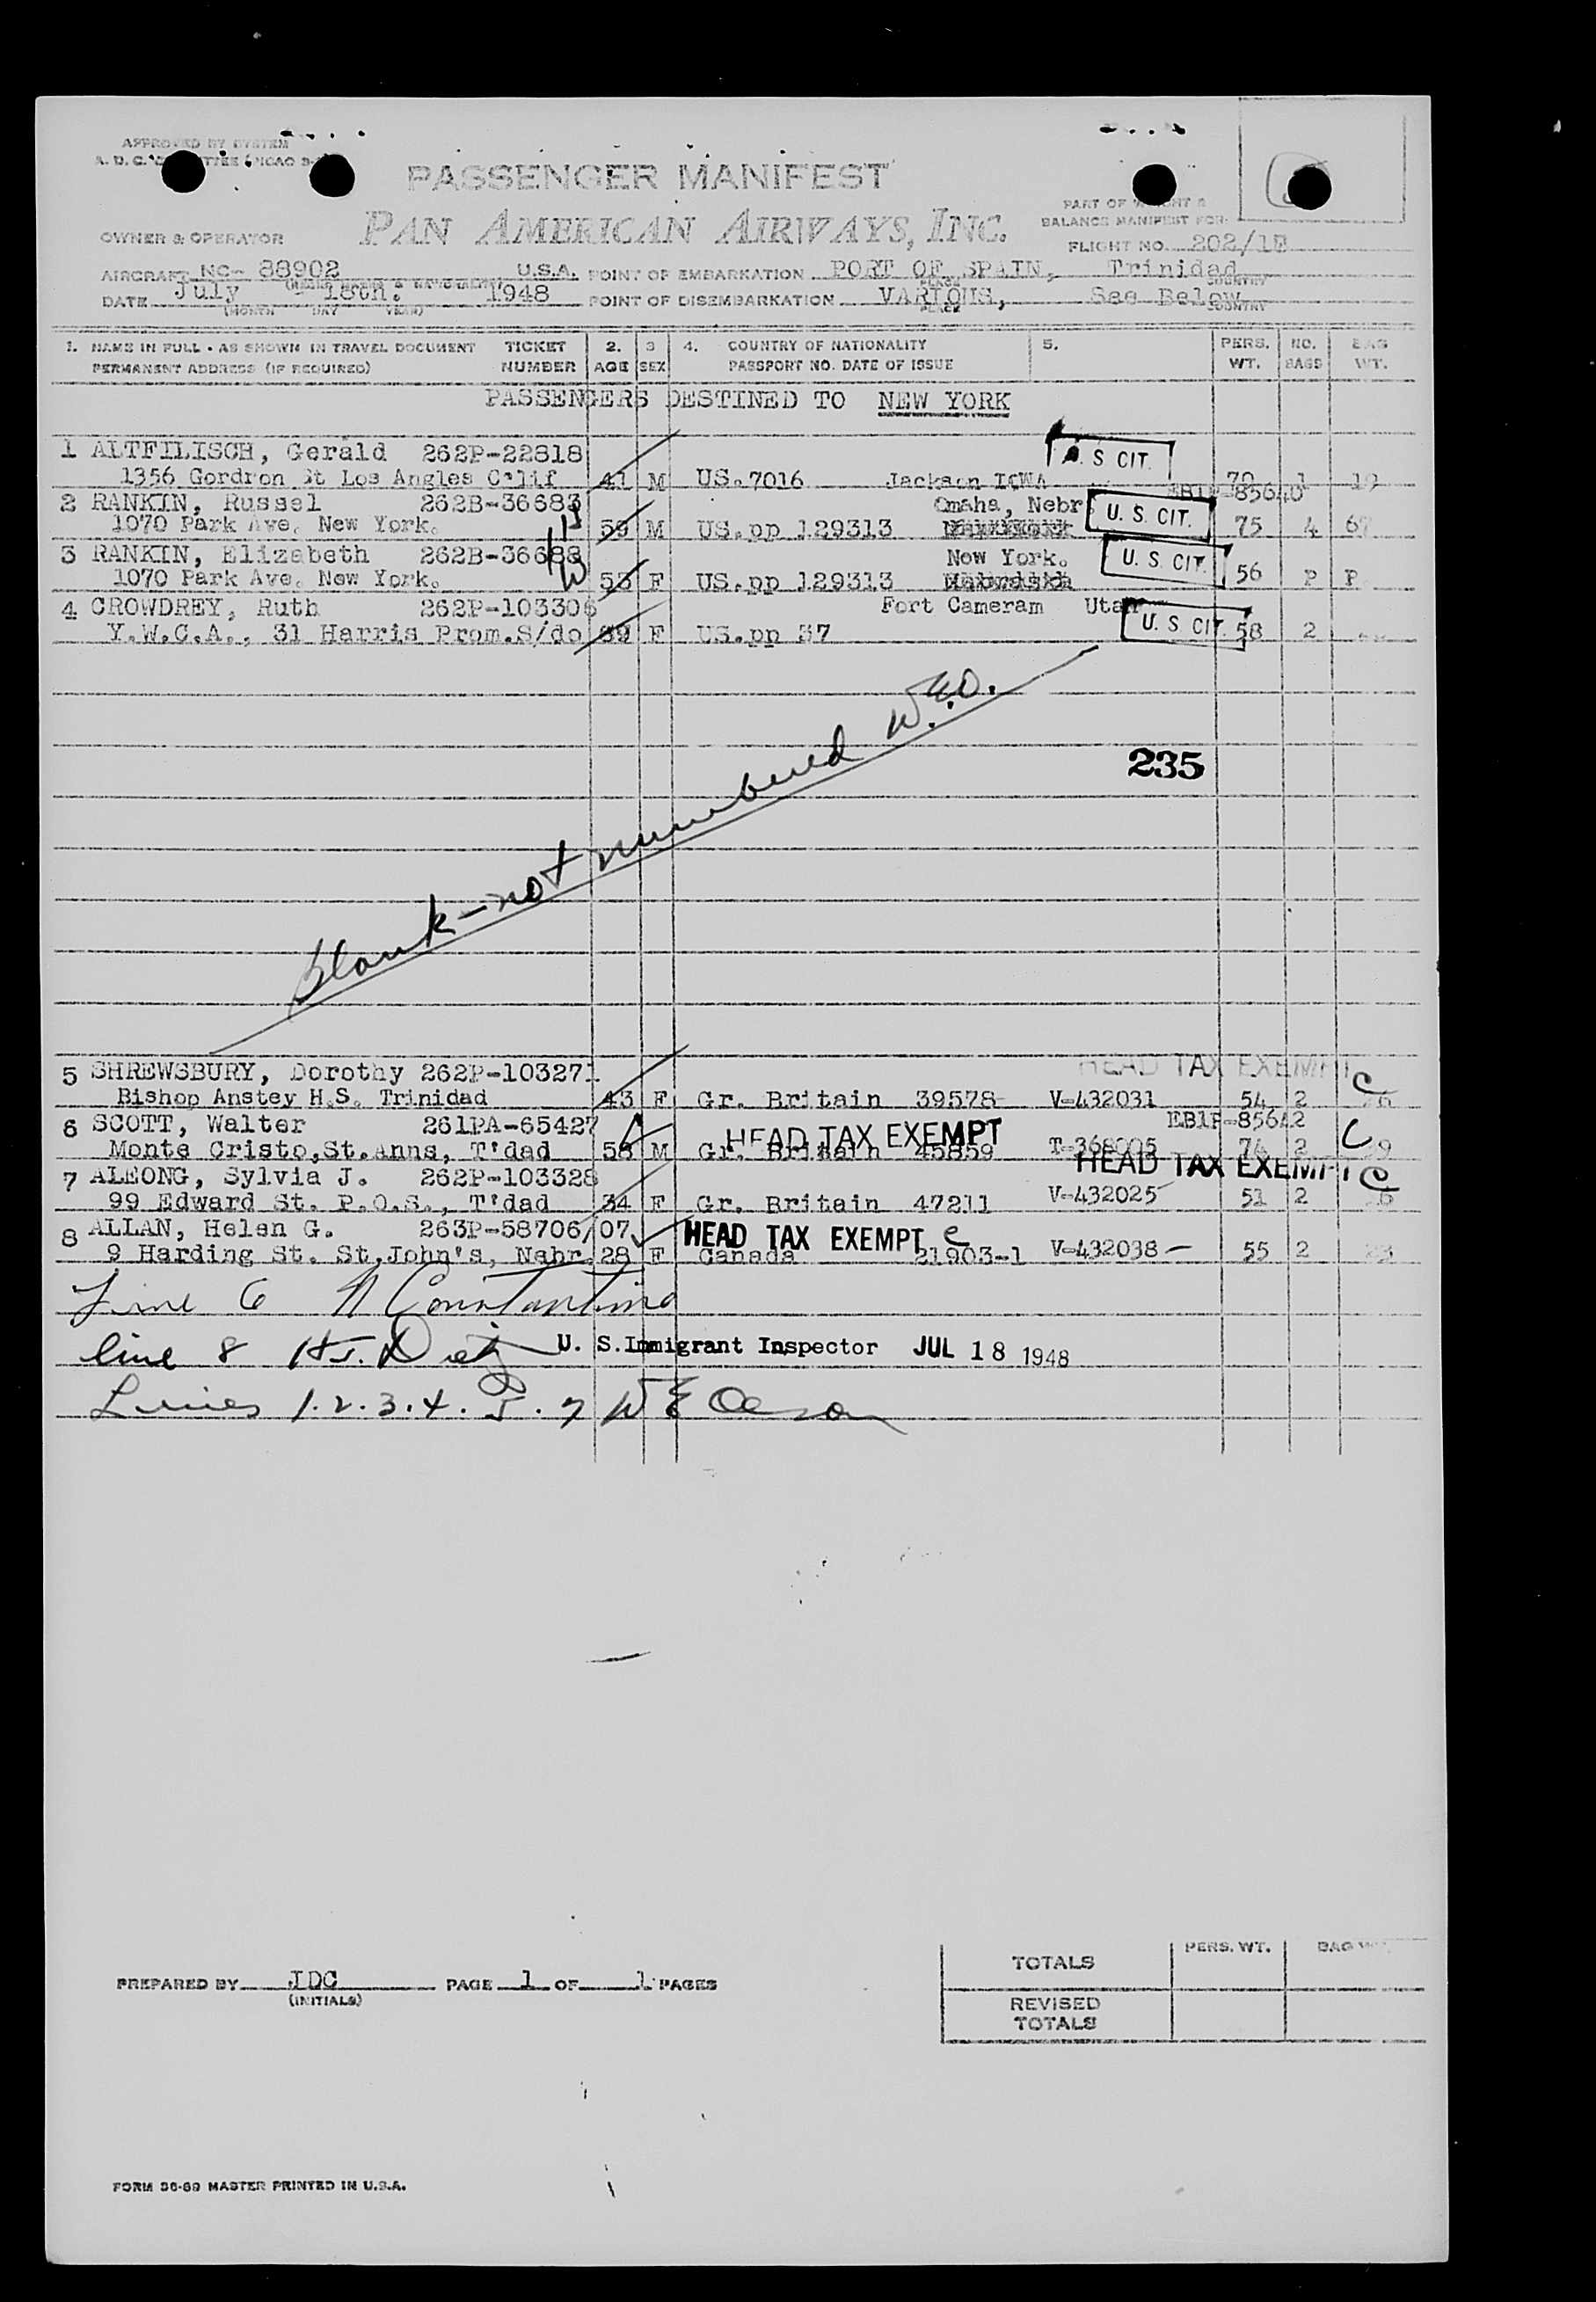 APPROVED BY SYSTEM
PASSENGER MANIFEST
PAN AMERICAN AIRWAYS, INC.
PART OF WEIGHT &
BALANCE MANIFEST FOR:
OWNER & OPERATOR
FLIGHT NO. 202/1
AIRCRAFT NC- 88902 U.S.A. POINT OF EMBARKATION PORT OF SPAIN, Trinidad
PLACE COUNTRY
DATE July - 18th. 1948 POINT OF DISEMBARKATION VARIOUS, See Below
(MONTH DAY YEAR) PLACE COUNTRY
1. NAME IN FULL - AS SHOWN IN TRAVEL DOCUMENT TICKET 2. 3 4. COUNTRY OF NATIONALITY 5. PERS. NO. BAG
PERMANENT ADDRESS (IF REQUIRED) NUMBER AGE SEX PASSPORT NO. DATE OF ISSUE WT. BAGS WT.
PASSENGERS DESTINED TO NEW YORK
1 ALTFILISCH, Gerald 262P-22818 U. S CIT.
1356 Gordron St Los Angles Calif 41 M US.7016 Jackson IOWA 70 1 19
2 RANKIN, Russel 262B-36683 Omaha, Nebr U. S. CIT. EB1P-85640
1070 Park Ave. New York. 59 M US.pp 129313 75 4 67
3 RANKIN, Elizabeth 262B-36688 New York. U. S. CIT.
1070 Park Ave. New York. 53 F US.pp 129313 56 P P
4 CROWDREY, Ruth 262P-103306 Fort Cameram Utah
Y.W.C.A., 31 Harris Prom.S/do 39 F US.pp 37 U. S CIT. 58 2
Blank - not numbered W.E.O.
235
5 SHREWSBURY, Dorothy 262P-103271 HEAD TAX EXEMPT C
Bishop Anstey H.S. Trinidad 43 F Gr. Britain 39578 V-432031 54 2
6 SCOTT, Walter 261PA-65427 HEAD TAX EXEMPT EB1P-85642 C
Monte Cristo,St.Anns, T'dad 58 M Gr. Britain 45859 T-368005 74 2
7 ALEONG, Sylvia J. 262P-103328 HEAD TAX EXEMPT C
99 Edward St. P.O.S., T'dad 34 F Gr. Britain 47211 V-432025 51 2
8 ALLAN, Helen G. 263P-58706/07 HEAD TAX EXEMPT C
9 Harding St. St,John's, Nabr. 28 F Canada 21903-1 V-432038 - 55 2 23
Line 6 N Constantino
line 8 U. S. Immigrant Inspector JUL 18 1948
Lines 1.2.3.4.5.7 W E Oleson
TOTALS PERS. WT. BAG WT.
PREPARED BY JDC PAGE 1 OF 1 PAGES
(INITIALS)
REVISED
TOTALS
FORM 36-69 MASTER PRINTED IN U.S.A.